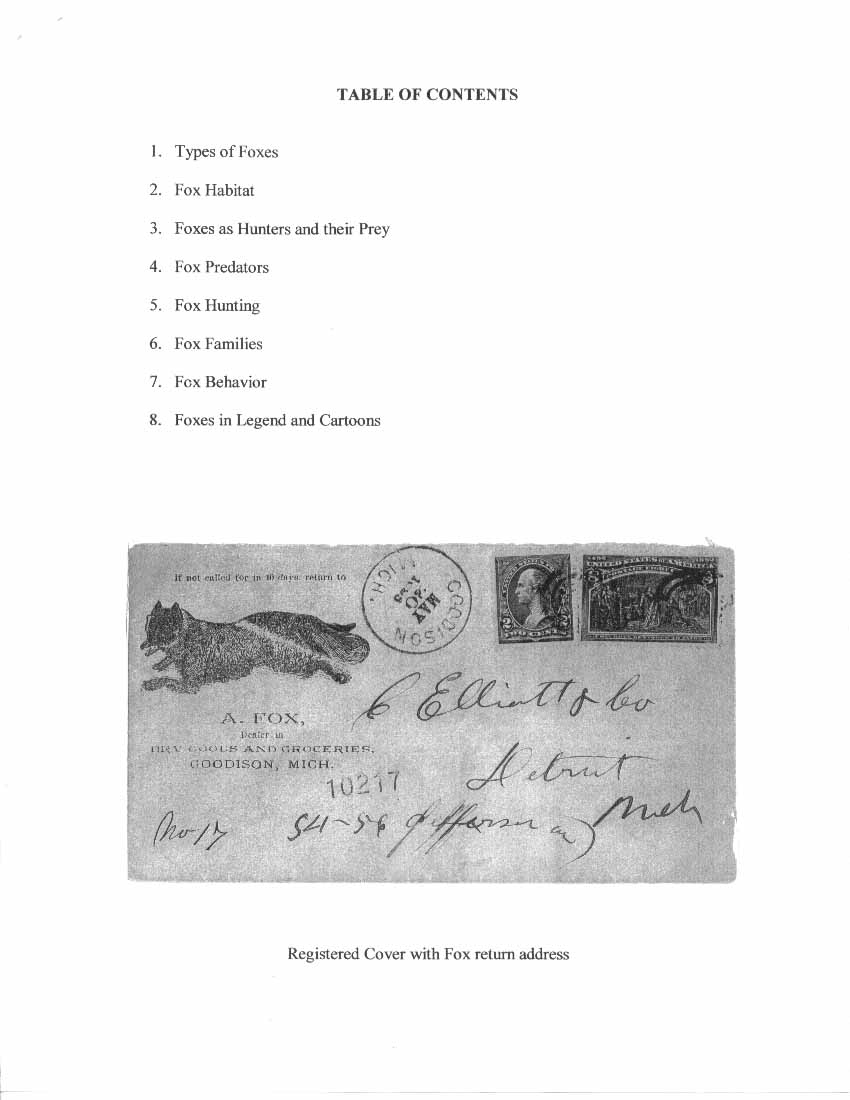 TABLE OF CONTENTS
1. Types of Foxes
2. Fox Habitat
3. Foxes as Hunters and their Prey
4. Fox Predators
5. Fox Hunting
6. Fox Families
7. Fox Behavior
8. Foxes in Legend and Cartoons
If not called for in 10 days, return to
GOODISON MICH.
MAY
20
TWO CENTS
UNITED STATES OF AMERICA
POSTAGE EIGHT
A. FOX,
Dealer in
DRY GOODS AND GROCERIES,
GOODISON, MICH.
10217
C Elliott & Co
Detroit
Mich
No 17
54-56 Jefferson av
Registered Cover with Fox return address